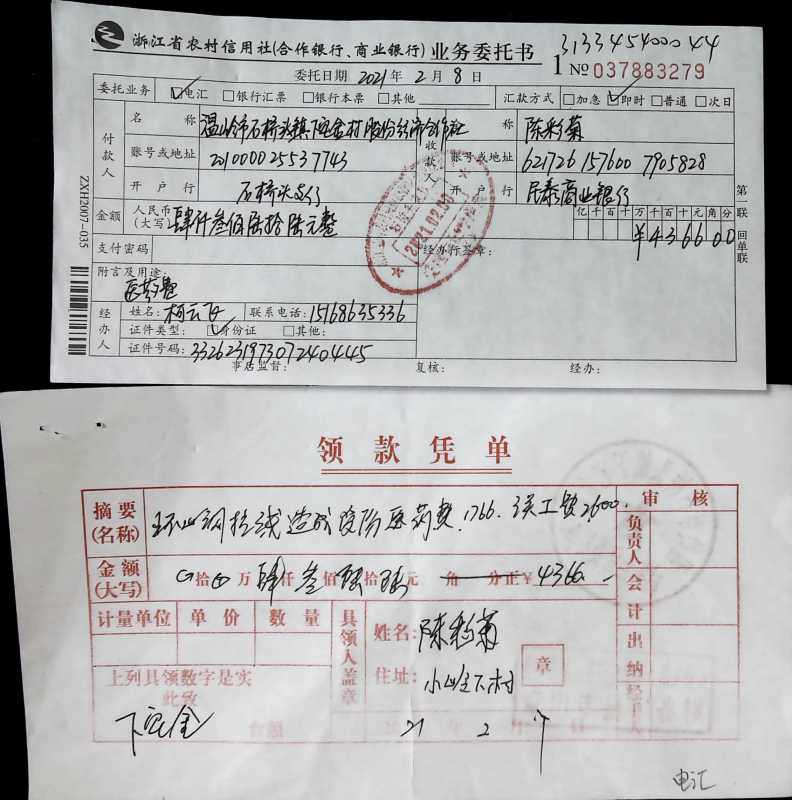 浙江省农村信用社(合作银行、商业银行)业务委托书
313345400044
1 № 037883279
委托日期 2021年 2月 8日
委托业务 ☑电汇 □银行汇票 □银行本票 □其他
汇款方式 □加急 ☑即时 □普通 □次日
付款人
名称 温岭市石桥头镇下宅金村股份经济合作社
账号或地址 201000025537743
开户行 石桥头支行
收款人
称 陈彩菊
账号或地址 621726 157600 7905828
开户行 民泰商业银行
金额 人民币(大写) 肆仟叁佰陆拾陆元整
亿千百十万千百十元角分
¥436600
支付密码
经办行签章:
2021.02.08
附言及用途:
医药费
经办人
姓名: 柯云飞 联系电话: 15168635336
证件类型: ☑身份证 □其他:
证件号码: 3326231973072404445
事后监督: 复核: 经办:
第一联 回单联
ZXH2007-035
领款凭单
摘要(名称) 环山钢拉线造成受伤医药费.1766.误工费2600.
审核
金额(大写) 拾 万肆仟叁佰陆拾陆元 角 分正¥4366
计量单位 单价 数量
具领人盖章
姓名: 陈彩菊
住址:
章
负责人
会计
出纳
经手人
上列具领数字是实
此致
下宅金
21 年 2 月
电汇